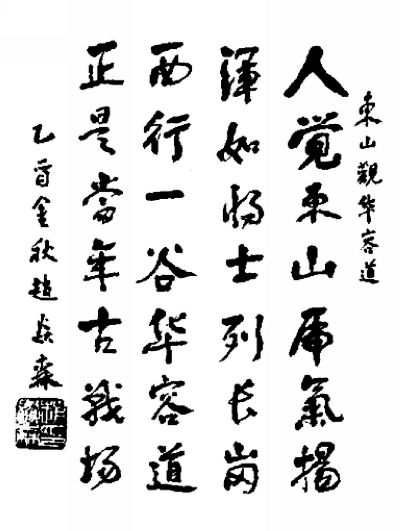 東山觀华容道
人覺東山虎氣揚
渾如将士列長崗
西行一谷华容道
正是當年古戰場
乙酉金秋趙焱森